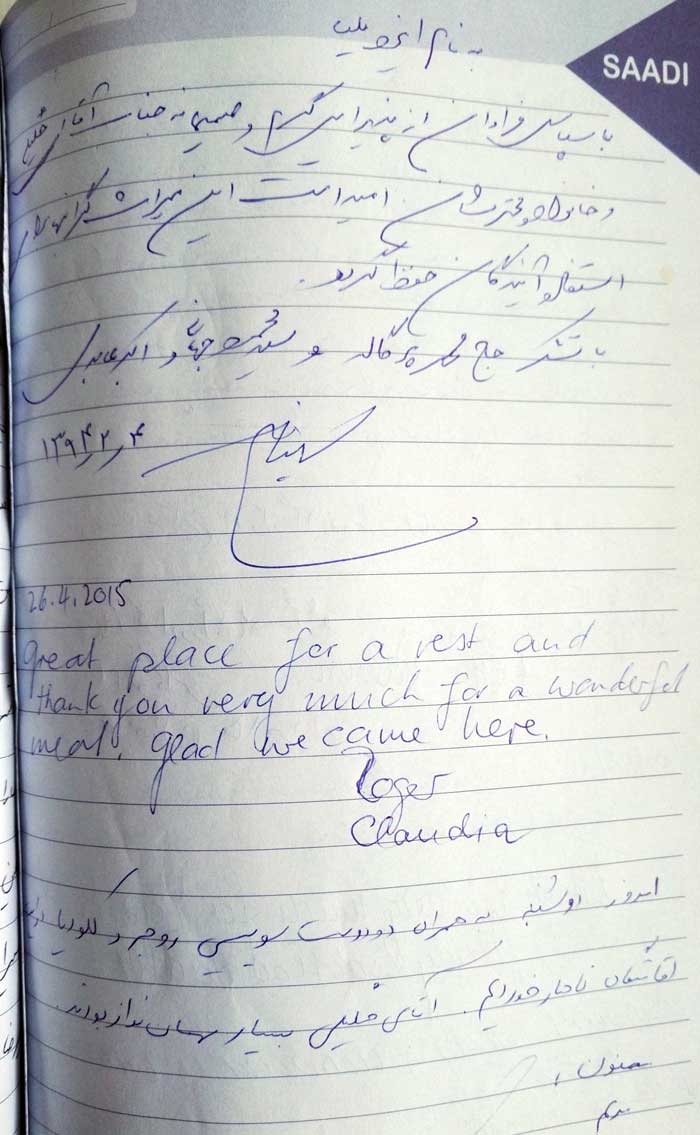 SAADI
به نام ایزد یکتا
با سپاس فراوان از پذیرایی گرم و صمیمانه جناب آقای خلیلی
و خانواده محترمشان. امید است این میراث گرانبها برای
آیندگان حفظ گردد.
با تشکر حاج محمد و سید و اکبر
۱۳۹۴ ر ۲ ر ۴
26.4.2015
Great place for a rest and
thank you very much for a wonderful
meal. Glad we came here.
Roger
Claudia
امروز دوشنبه به همراه دو دوست سویسی روجر و کلودیا در
اقامتگاهشان ناهار خوردیم. آقای خلیلی بسیار مهمان نواز بودند.
ممنون،
مریم